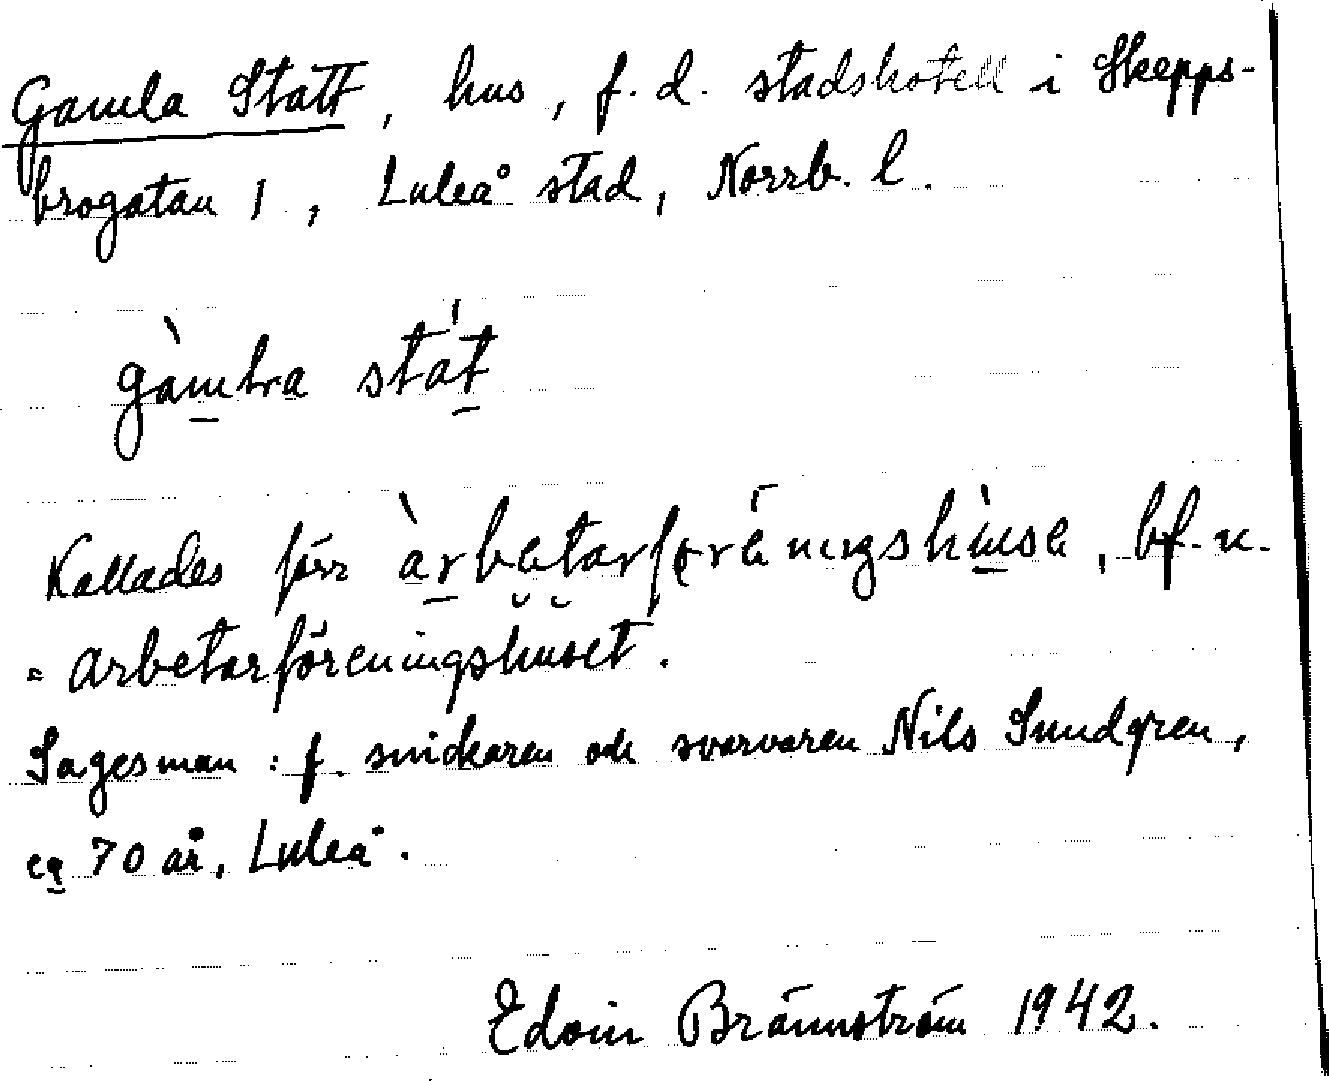 Gamla Statt, hus, f.d. stadshotell i Skepps-
brogatan 1, Luleå stad, Norrb. l.
gàmla stát
Kallades förr àrbetarförèningshùse, bf. n.
= Arbetarföreningshuset.
Sagesman: f. snickaren och svarvaren Nils Sundgren,
ca 70 år, Luleå.
Edvin Brännström 1942.